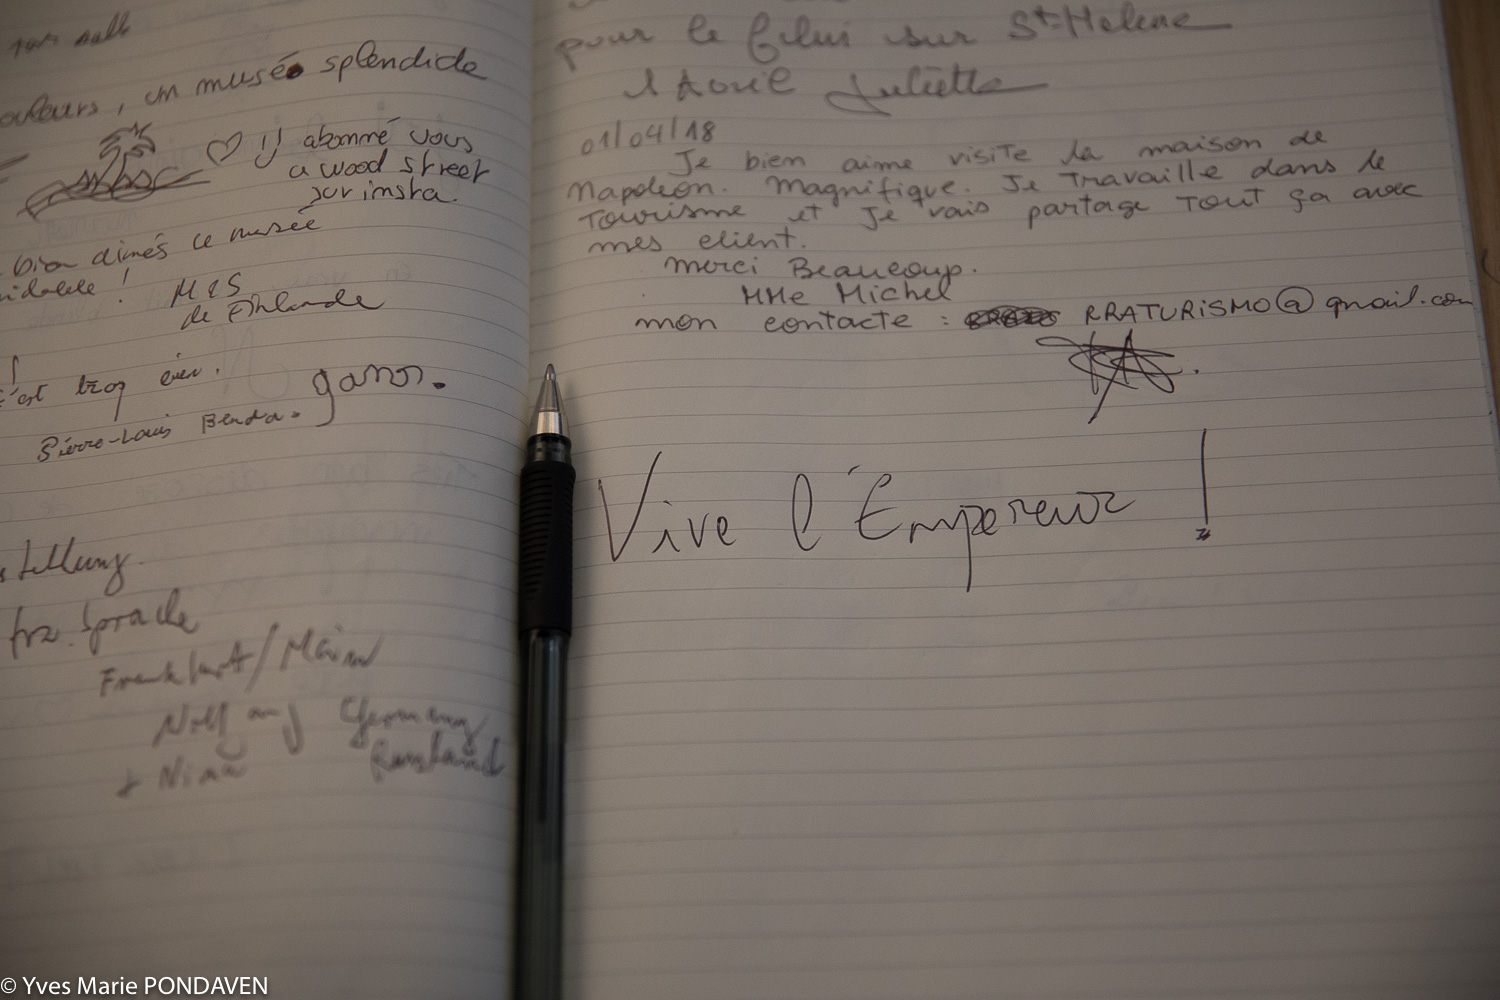 un musée splendide
abonné vous
a wood street
sur insta.
bien aimés ce musée
!
M&S
de Finlande
!
c'est trop
Pierre-Louis Benda.
stellung
frz. Sprache
Frankfurt/Main
Germany
+ Nina
pour le sur St-Helene
1 Avril Juliette
01/04/18
Je bien aime visite la maison de
Napoleon. Magnifique. Je Travaille dans le
Tourisme et Je vais partage Tout ça avec
mes client.
merci Beaucoup.
MMe Michel
mon contacte : RRATURISMO@gmail.com
Vive l'Empereur !
© Yves Marie PONDAVEN